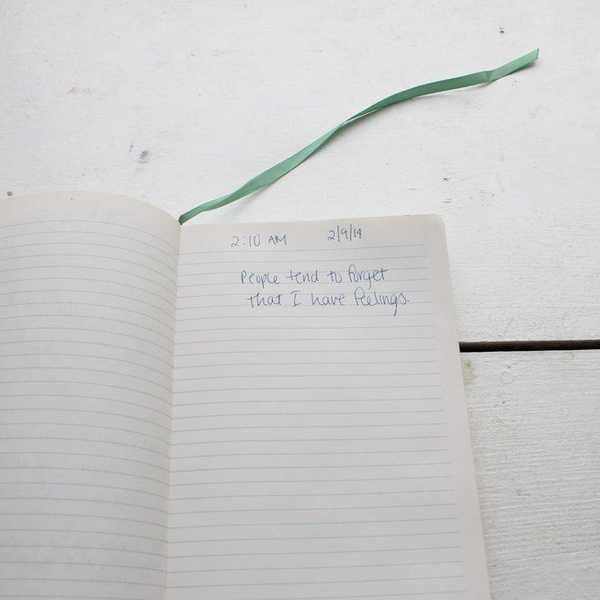 2:10 AM 2/9/19
People tend to forget
that I have feelings.